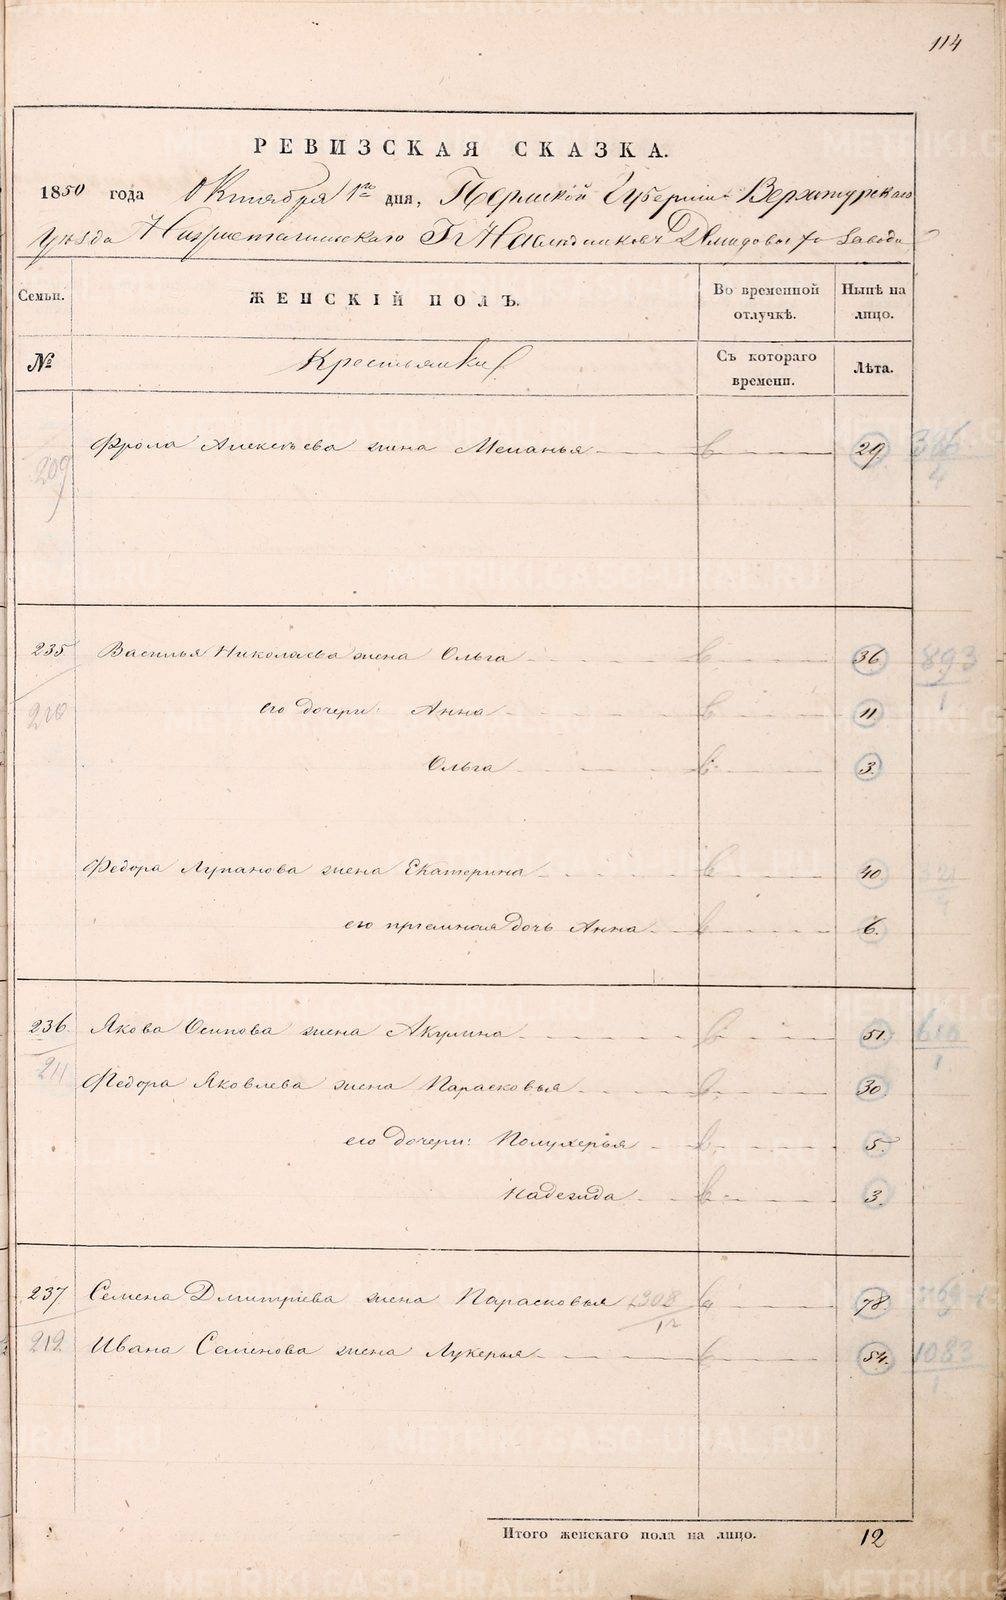 114
РЕВИЗСКАЯ СКАЗКА.
1850 года Октября 1го дня, Пермской Губернiи Верхотурскаго
Уѣзда Нижнетагильскаго Гг Наслѣдниковъ Демидовыхъ завода
Семьи. ЖЕНСКIЙ ПОЛЪ. Во временной отлучкѣ. Нынѣ на лицо.
№ Крестьянки Съ котораго времени. Лѣта.
209 Фрола Алексѣева жена Меланья 29. 396/4
235 Василья Николаева жена Ольга 36. 893/1
210 его дочери: Анна 11
Ольга 3.
Федора Лупанова жена Екатерина 40
его прiемная дочь Анна 6.
236. Якова Осипова жена Акулина 51.
211 Федора Яковлева жена Парасковья 30
его дочери: Полухерья 5.
Надежда 3.
237. Семена Дмитрiева жена Парасковья 1308/12 78.
212 Ивана Семенова жена Лукерья 54. 1083/1
Итого женскаго пола на лицо. 12
METRIKI.GASO-URAL.RU